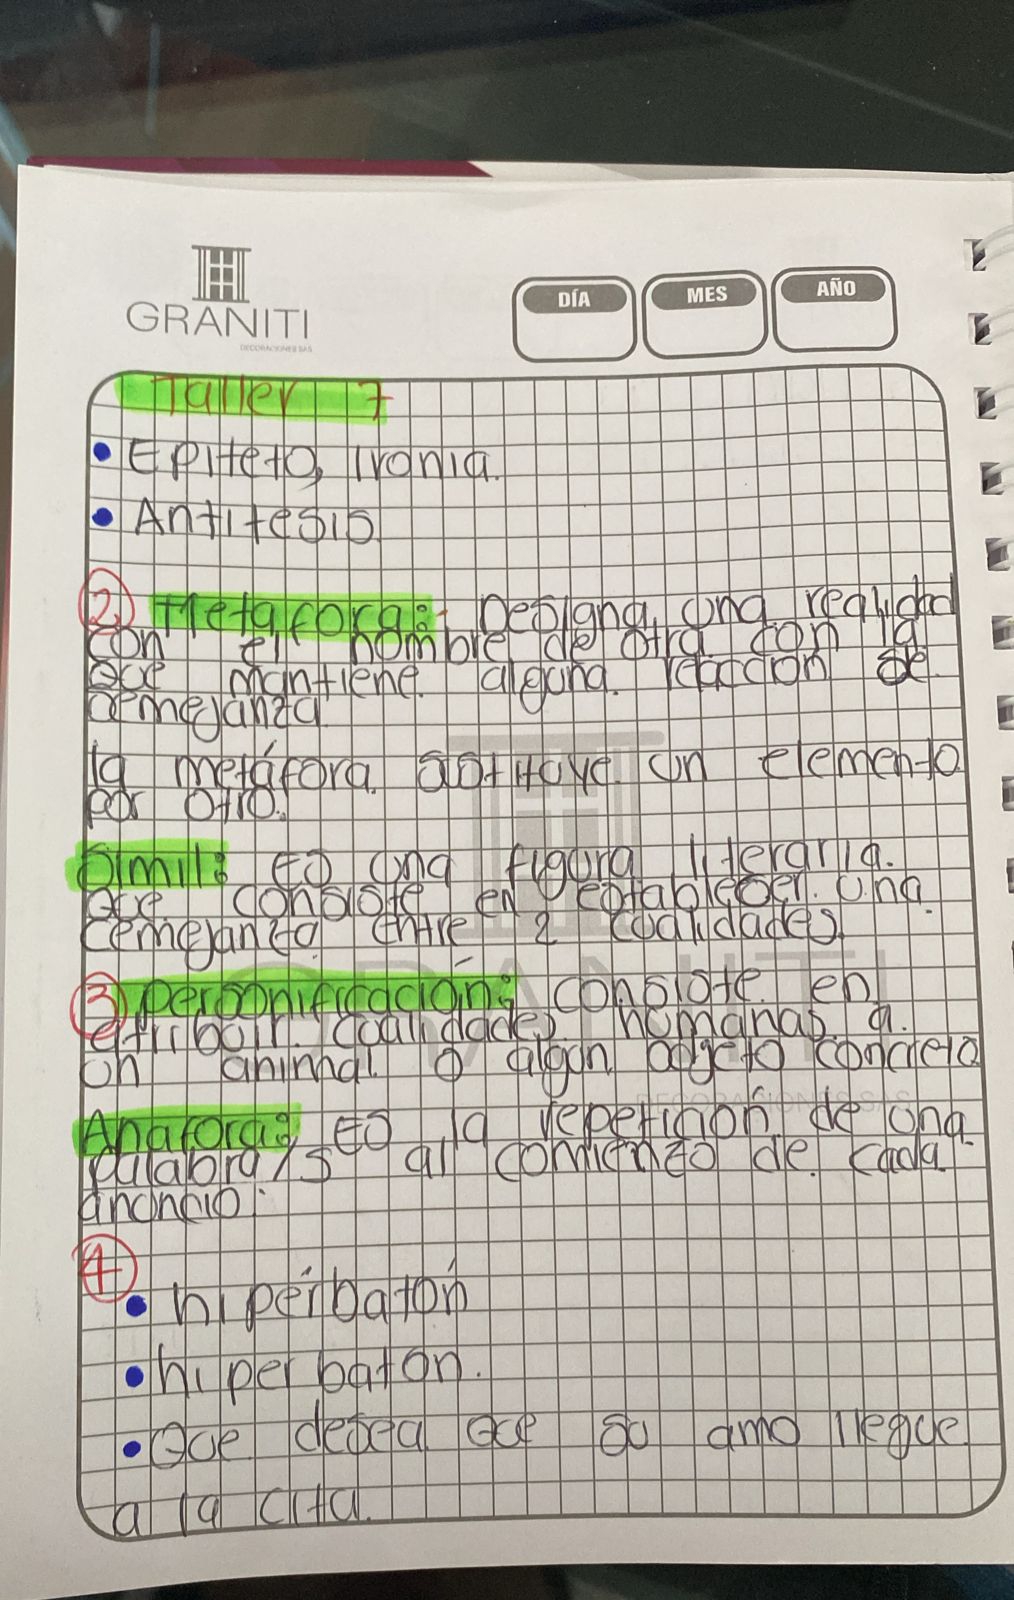 GRANITI
DECORACIONES SAS
DÍA
MES
AÑO
Taller 7
• Epiteto, Ironia.
• Antitesis
2 Metafora: Designa una realidad
con el nombre de otra con la
que mantiene alguna relacion de
semejanza
la metáfora sustituye un elemento
por otro.
Simil: Es una figura literaria.
que consiste en establecer una
cemejanza entre 2 cualidades.
3 personificación: consiste en
atribuir cualidades humanas a
un animal o algun objeto concreto
Anafora: Es la repetición de una
palabra/s al comienzo de cada
anuncio.
4
• hipérbatón
• hiperbaton.
• Que desea que su amo llegue
a la cita.